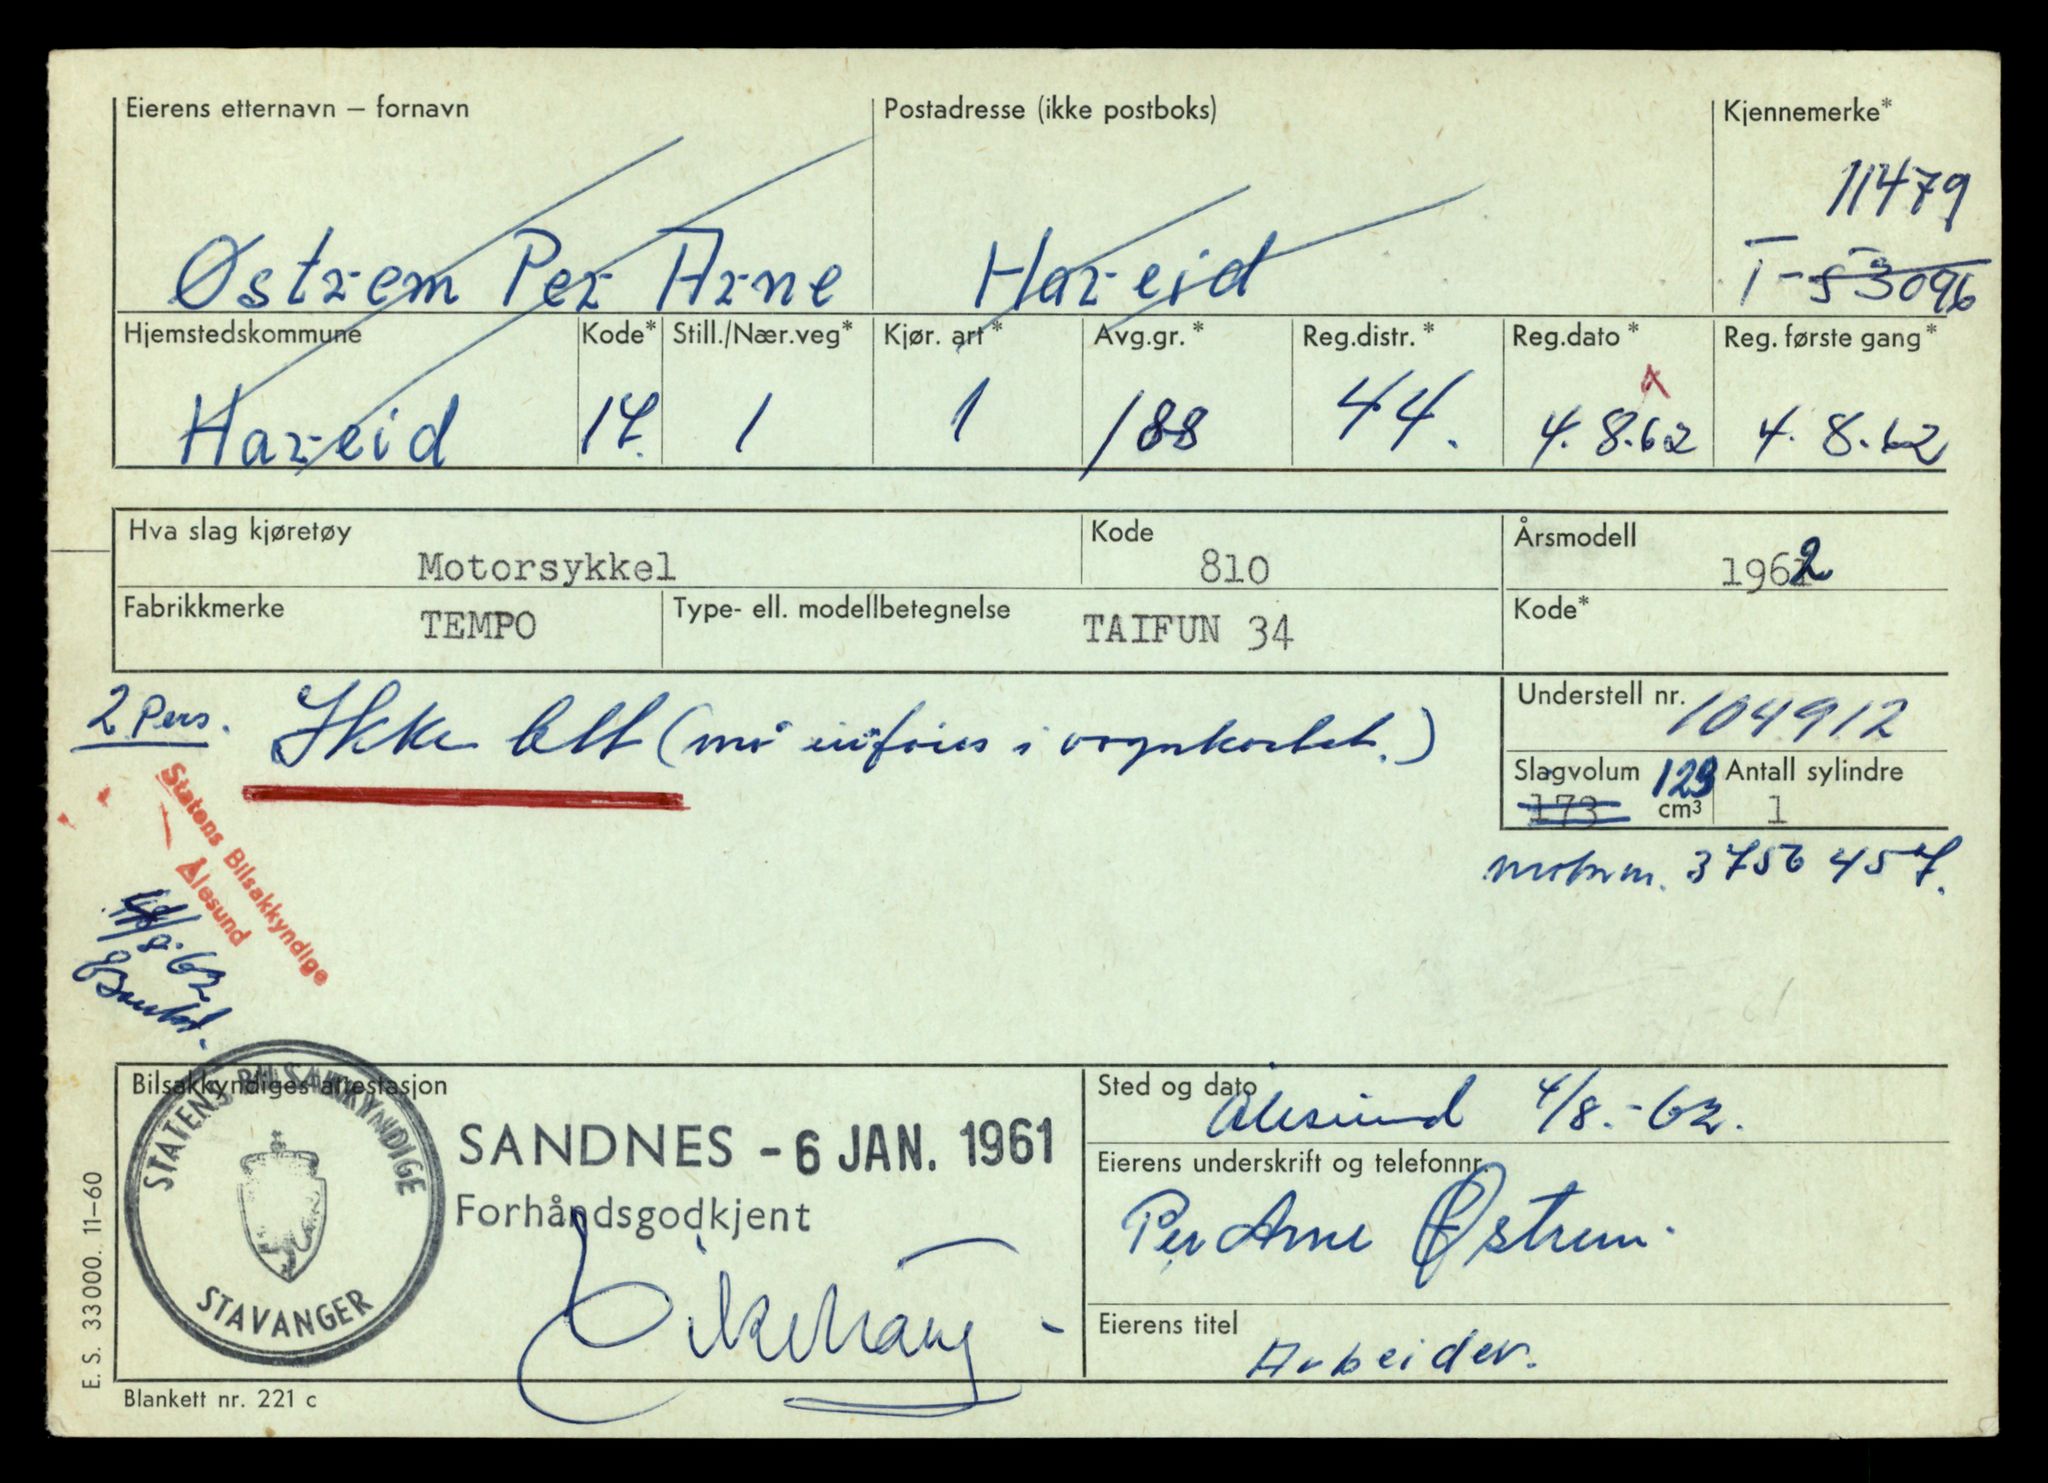 Eierens etternavn – fornavn
Postadresse (ikke postboks)
Kjennemerke*
11479
T-53096
Østrem Per Arne
Hareid
Hjemstedskommune
Kode*
Still./Nær.veg*
Kjør. art*
Avg.gr.*
Reg.distr.*
Reg.dato*
Reg. første gang*
Hareid
17.
1
1
188
44.
4.8.62
4.8.62
Hva slag kjøretøy
Motorsykkel
Kode
810
Årsmodell
1962
Fabrikkmerke
TEMPO
Type- ell. modellbetegnelse
TAIFUN 34
Kode*
2 Pers.
Ikke lett (må innføres i vognkortet.)
Understell nr.
104912
Slagvolum
123
173
cm³
Antall sylindre
1
motornr. 3756457.
Statens Bilsakkyndige
Ålesund
8.62
Bilsakkyndiges attestasjon
STATENS BILSAKKYNDIGE
STAVANGER
SANDNES - 6 JAN. 1961
Forhåndsgodkjent
Sted og dato
Ålesund 4/8.-62.
Eierens underskrift og telefonnr.
Per Arne Østrem.
Eierens titel
Arbeider.
E. S. 33000. 11–60
Blankett nr. 221 c